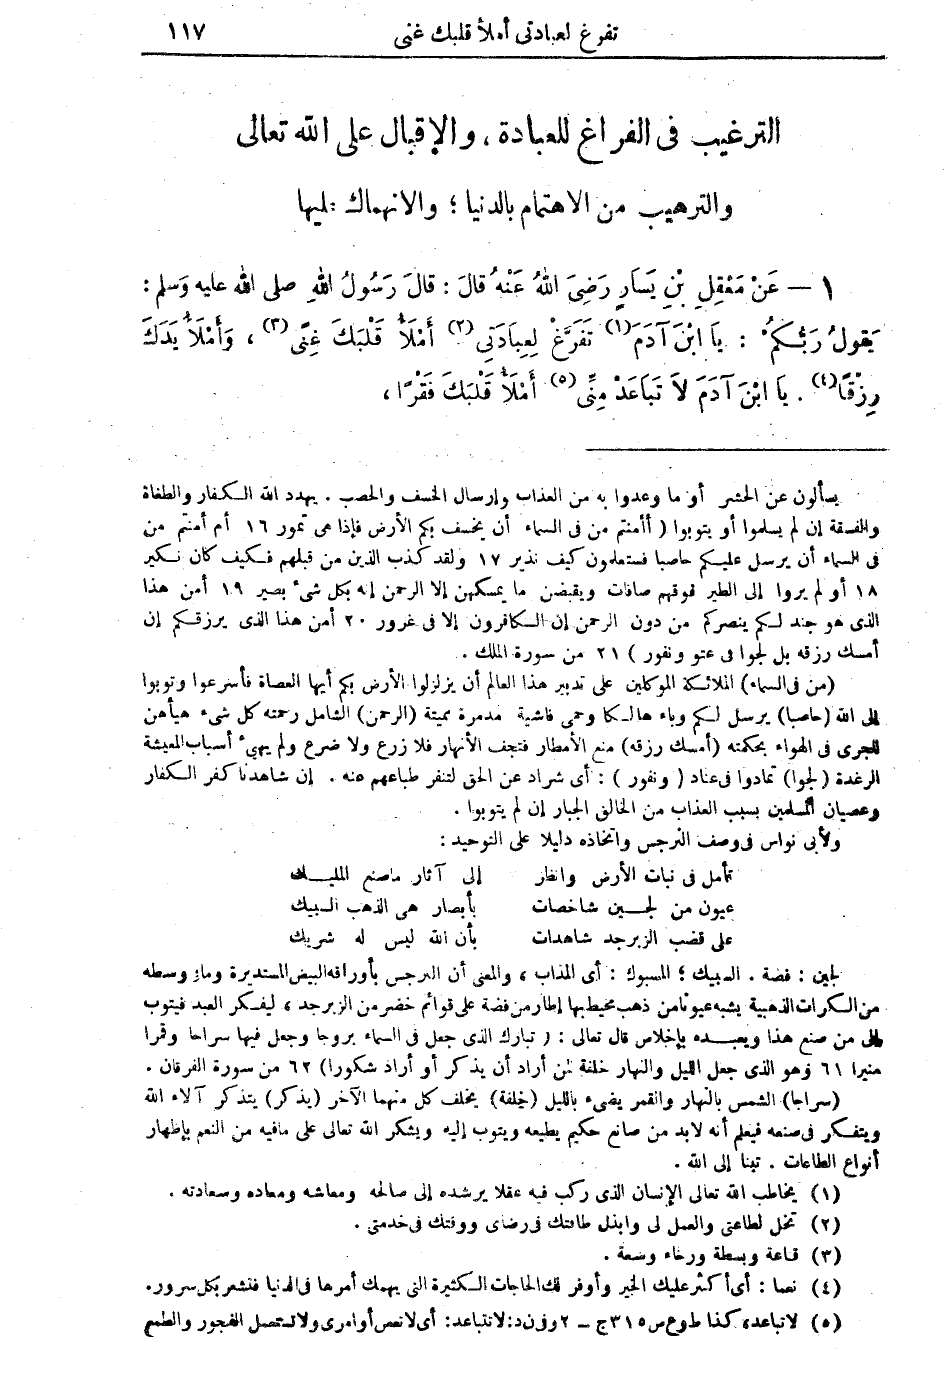 تفرغ لعبادتى أملأ قلبك غنى ١١٧
الترغيب فى الفراغ للعبادة، والإقبال على الله تعالى
والترهيب من الاهتمام بالدنيا؛ والانهماك عليها
١ — عَنْ مَعْقِلِ بْنِ يَسَارٍ رَضِىَ اللهُ عَنْهُ قَالَ: قَالَ رَسُولُ اللهِ صلى الله عليه وَسلم:
يَقُولُ رَبُّكُمْ: يَا ابْنَ آدَمَ(١) تَفَرَّغْ لِعِبَادَتِى(٢) أَمْلَأْ قَلْبَكَ غِنًى(٣)، وَأَمْلَأْ يَدَكَ
رِزْقًا(٤). يَا ابْنَ آدَمَ لَا تَبَاعَدْ مِنِّى(٥) أَمْلَأْ قَلْبَكَ فَقْرًا،
يسألون عن الحشر أو ما وعدوا به من العذاب وإرسال الخسف والحصب. يهدد الله الكفار والطغاة
والفسقة إن لم يسلموا أو يتوبوا (أأمنتم من فى السماء أن يخسف بكم الأرض فإذا هى تمور ١٦ أم أمنتم من
فى السماء أن يرسل عليكم حاصبا فستعلمون كيف نذير ١٧ ولقد كذب الذين من قبلهم فكيف كان نكير
١٨ أو لم يروا إلى الطير فوقهم صافات ويقبضن ما يمسكهن إلا الرحمن إنه بكل شىء بصير ١٩ أمن هذا
الذى هو جند لكم ينصركم من دون الرحمن إن الكافرون إلا فى غرور ٢٠ أمن هذا الذى يرزقكم إن
أمسك رزقه بل لجوا فى عتو ونفور) ٢١ من سورة الملك.
(من فى السماء) الملائكة الموكلين على تدبير هذا العالم أن يزلزلوا الأرض بكم أيها العصاة فأسرعوا وتوبوا
إلى الله (حاصبا) يرسل لكم وباء هالكا وحمى فاشية مدمرة مميتة (الرحمن) الشامل رحمته كل شىء هيأهن
للجرى فى الهواء بحكمته (أمسك رزقه) منع الأمطار فتجف الأنهار فلا زرع ولا ضرع ولم يهيىء أسباب المعيشة
الرغدة (لجوا) تمادوا فى عناد (ونفور): أى شراد عن الحق لتنفر طباعهم عنه. إن شاهدنا كفر الكفار
وعصيان المسلمين بسبب العذاب من الخالق الجبار إن لم يتوبوا.
ولأبى نواس فى وصف النرجس واتخاذه دليلا على التوحيد:
تأمل فى نبات الأرض وانظر إلى آثار ماصنع المليك
عيون من لجين شاخصات بأبصار هى الذهب السبيك
على قضب الزبرجد شاهدات بأن الله ليس له شريك
لجين: فضة. السبيك؛ المسبوك: أى المذاب، والمعنى أن النرجس بأوراقه البيض المستديرة وما فى وسطه
من الكرات الذهبية يشبه عيونا من ذهب محيط بها إطار من فضة على قوائم خضر من الزبرجد، ليفكر العبد فيتوب
إلى من صنع هذا ويعبده بإخلاص قال تعالى: (تبارك الذى جعل فى السماء بروجا وجعل فيها سراجا وقمرا
منيرا ٦١ وهو الذى جعل الليل والنهار خلفة لمن أراد أن يذكر أو أراد شكورا) ٦٢ من سورة الفرقان.
(سراجا) الشمس بالنهار والقمر يضىء بالليل (خلفة) يخلف كل منهما الآخر (يذكر) يتذكر آلاء الله
ويتفكر فى صنعه فيعلم أنه لابد من صانع حكيم يطيعه ويتوب إليه ويشكر الله تعالى على مافيه من النعم بإظهار
أنواع الطاعات. تبنا إلى الله.
(١) يخاطب الله تعالى الإنسان الذى ركب فيه عقلا يرشده إلى صالحه ومعاشه ومعاده وسعادته.
(٢) تخل لطاعتى والعمل لى وابذل طاقتك فى رضاى ووقتك فى خدمتى.
(٣) قناعة وبسطة ورخاء وسعة.
(٤) نعما: أى أكثر عليك الخير وأوفر لك الحاجات الكثيرة التى يهمك أمرها فى الدنيا فتشعر بكل سرور.
(٥) لاتباعد، كذا ط وع ص ٣١٥ ج — ٢ وفى ن د: لاتتباعد: أى لاتعص أوامرى ولا تحصل الفجور والطمع